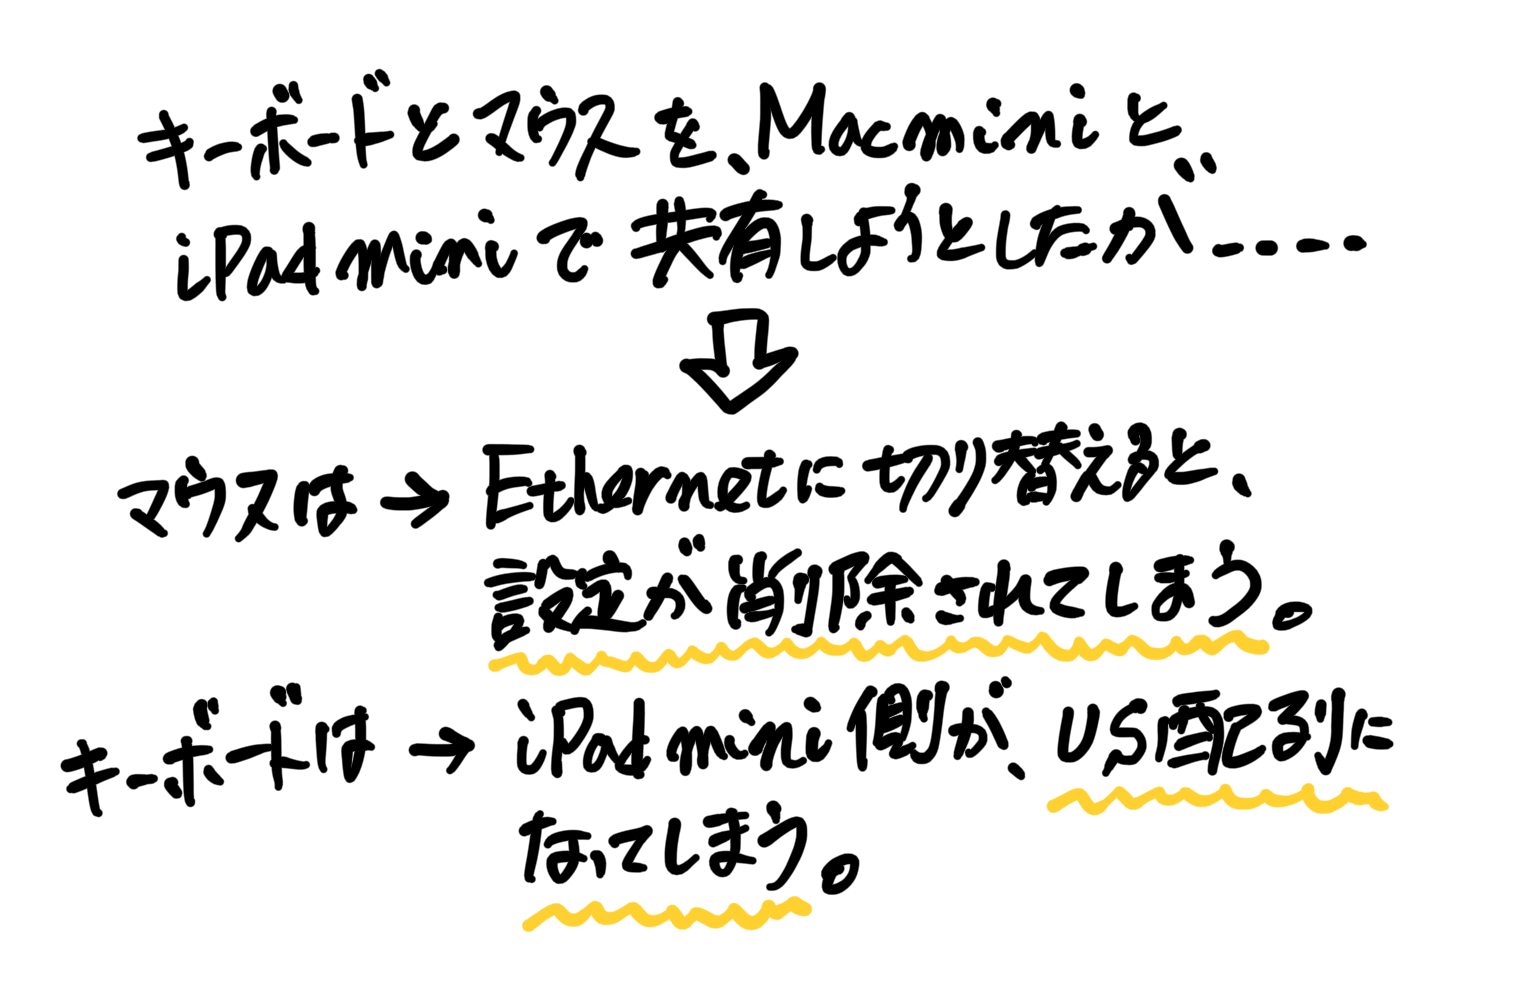 キーボードとマウスを、Macminiと
iPad miniで共有しようとしたが‥‥
マウスは→Ethernetに切り替えると、
設定が削除されてしまう。
キーボードは→iPad mini側が、US配列に
なってしまう。